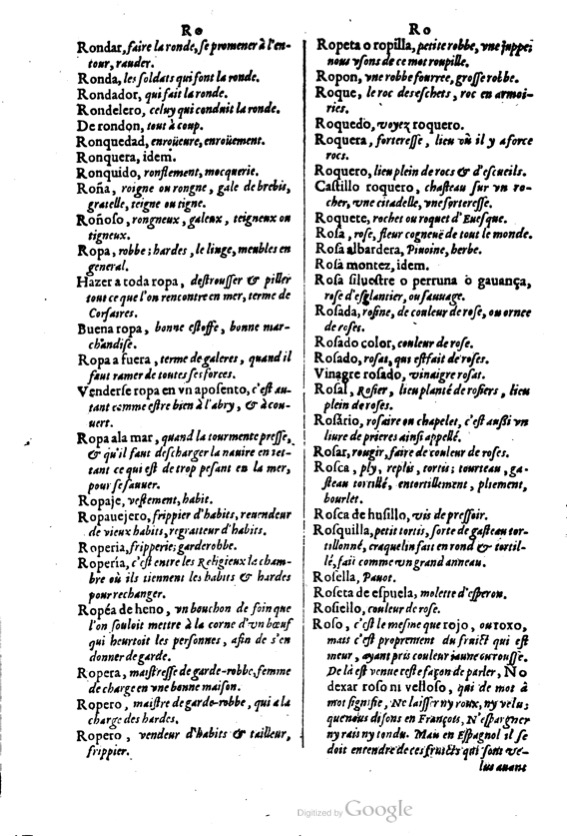 Ro
Rondar, faire la ronde, se promener à l'en-
tour, rauder.
Ronda, les soldats qui font la ronde.
Rondador, qui fait la ronde.
Rondelero, celuy qui conduit la ronde.
De rondon, tout à coup.
Ronquedad, enroüeure, enroüement.
Ronquera, idem.
Ronquido, ronflement, mocquerie.
Roña, roigne ou rongne, gale de brebis,
gratelle, teigne ou tigne.
Roñoso, rongneux, galeux, teigneux ou
tigneux.
Ropa, robbe; hardes, le linge, meubles en
general.
Hazer a toda ropa, destrousser & piller
tout ce que l'on rencontre en mer, terme de
Corsaires.
Buena ropa, bonne estoffe, bonne mar-
chandise.
Ropa a fuera, terme de galeres, quand il
faut ramer de toutes ses forces.
Venderse ropa en vn aposento, c'est au-
tant comme estre bien à l'abry, & à cou-
uert.
Ropa ala mar, quand la tourmente presse,
& qu'il faut descharger la nauire en iet-
tant ce qui est de trop pesant en la mer,
pour se sauuer.
Ropaje, vestement, habit.
Ropauejero, frippier d'habits, reuendeur
de vieux habits, regratteur d'habits.
Roperia, fripperie; garderobbe.
Ropería, c'est entre les Religieux la cham-
bre où ils tiennent les habits & hardes
pour rechanger.
Ropéa de heno, vn bouchon de foin que
l'on souloit mettre à la corne d'vn bœuf
qui heurtoit les personnes, afin de s'en
donner de garde.
Ropera, maistresse de garde-robbe, femme
de charge en vne bonne maison.
Ropero, maistre de garde-robbe, qui a la
charge des hardes.
Ropero, vendeur d'habits & tailleur,
frippier.
Ro
Ropeta o ropilla, petite robbe, vne juppe;
nous vsons de ce mot roupille.
Ropon, vne robbe fourree, grosse robbe.
Roque, le roc des eschets, roc en armoi-
ries.
Roquedo, voyez roquero.
Roquera, forteresse, lieu où il y a force
rocs.
Roquero, lieu plein de rocs & d'escueils.
Castillo roquero, chasteau sur vn ro-
cher, vne citadelle, vne forteresse.
Roquete, rochet ou roquet d'Euesque.
Rosa, rose, fleur cogneuë de tout le monde.
Rosa albardera, Piuoine, herbe.
Rosa montez, idem.
Rosa siluestre o perruna ò gauança,
rose d'esglantier, ou sauuage.
Rosada, rosine, de couleur de rose, ou ornee
de roses.
Rosado color, couleur de rose.
Rosado, rosat, qui est fait de roses.
Vinagre rosado, vinaigre rosat.
Rosal, Rosier, lieu planté de rosiers, lieu
plein de roses.
Rosário, rosaire ou chapelet, c'est aussi vn
liure de prieres ainsi appellé.
Rosar, rougir, faire de couleur de roses.
Rosca, ply, replis, tortis; tourteau, ga-
steau tortillé, entortillement, pliement,
bourlet.
Rosca de husillo, vis de pressoir.
Rosquilla, petit tortis, sorte de gasteau tor-
tillonné, craquelin fait en rond & tortil-
lé, fait comme vn grand anneau.
Rosella, Pauot.
Roseta de espuela, molette d'esperon.
Rosiello, couleur de rose.
Roso, c'est le mesme que rojo, ou roxo,
mais c'est proprement du fruict qui est
meur, ayant pris couleur iaune ou rousse.
De là est venue ceste façon de parler, No
dexar roso ni velloso, qui de mot à
mot signifie, Ne laisser ny roux, ny velu;
que nous disons en François, N'espargner
ny rais ny tondu. Mais en Espagnol il se
doit entendre de ces fruicts qui sont ve-
lus auant
Digitized by Google